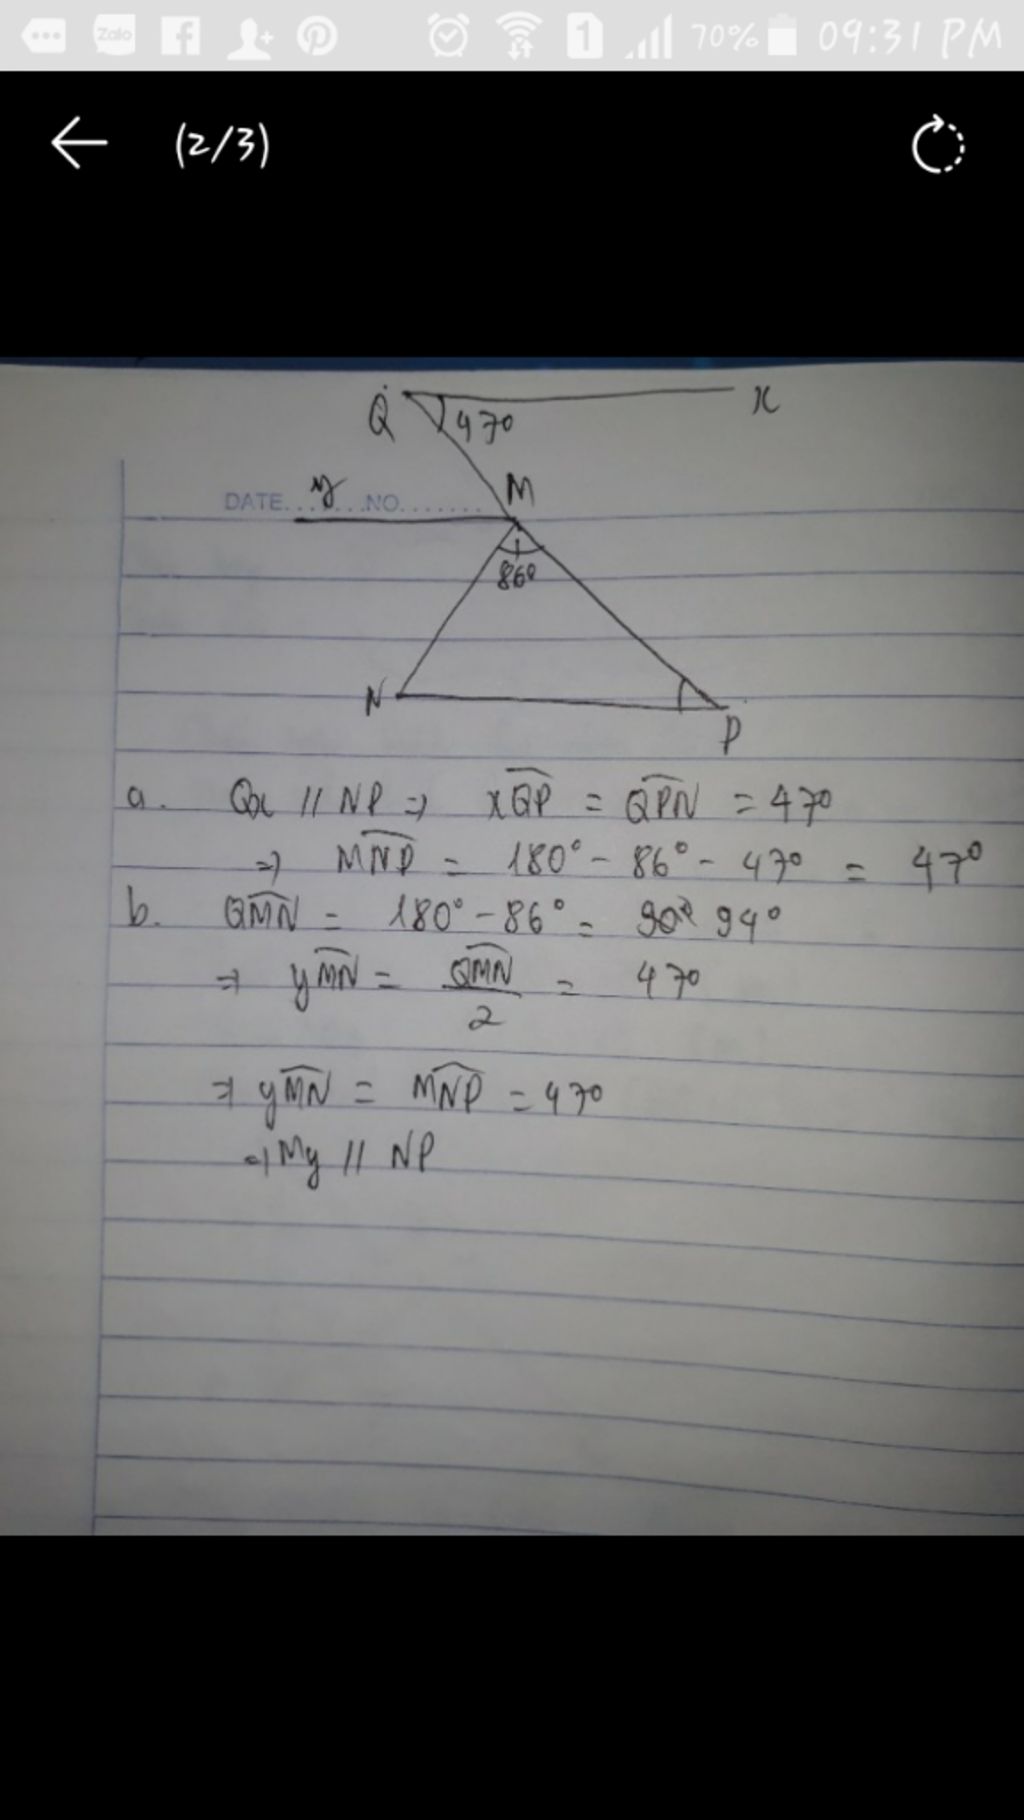 Zalo
1
70%
09:31 PM
(2/3)
Q
47°
x
DATE.......NO.......
y
M
86°
N
P
a. Qx // NP ⇒ xQP = QPN = 47°
⇒ MNP = 180° - 86° - 47° = 47°
b. QMN = 180° - 86° = 94°
⇒ yMN = QMN/2 = 47°
⇒ yMN = MNP = 47°
⇒ My // NP